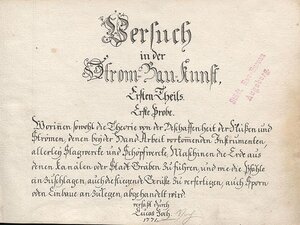 Versuch
in der
Strom-Bau-Kunst.
Ersten Theils.
Erste Probe.
Worinen sowohl die Theorie von der Beschaffenheit der Flüßen und
Strömen, denen bey der Hand Arbeit vorkomenden Instrumenten,
allerley Schlagwerke und Schöpfwerke, Maschinen die Erde aus
denen Kanälen oder Stadt Gräben zu führen, und wie die Pfähle
einzuschlagen, auch die fliegende Gerüste zu verfertigen, auch Sporn
oder Einbaue anzulegen, abgehandelt wird.
verfaßt durch
Lucas Voch